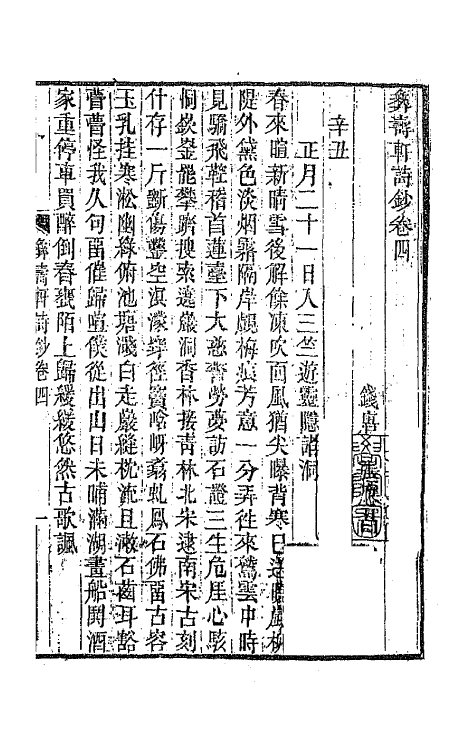 彝壽軒詩鈔卷四
錢唐
辛丑
正月二十一日入三竺遊靈隱諸洞
春來暄新晴雪後解餘凍吹面風猶尖曝背寒已送 風柳
隄外黛色淡烟霧隔岸覷梅痕芳意一分弄往來鶯雲中時
見驕飛鞚稽首蓮臺下大慈勞夢訪石證三生危厓心駭
恫欽崟罷攀躋搜索遶巖洞香林接靑林北宋逮南宋古刻
什存一斤斸傷鑿空滇濛穿徑竇唅呀翥虬鳳石佛留古容
玉乳挂寒淞幽綠俯池塘淺白走巖縫枕流且漱石齒耳豁
瞢瞢怪我久句留催歸噓僕從出山日未晡滿湖畫船鬨酒
家重停車買醉倒春甕陌上歸緩緩悠然古歌諷
彝壽軒詩鈔卷四
一